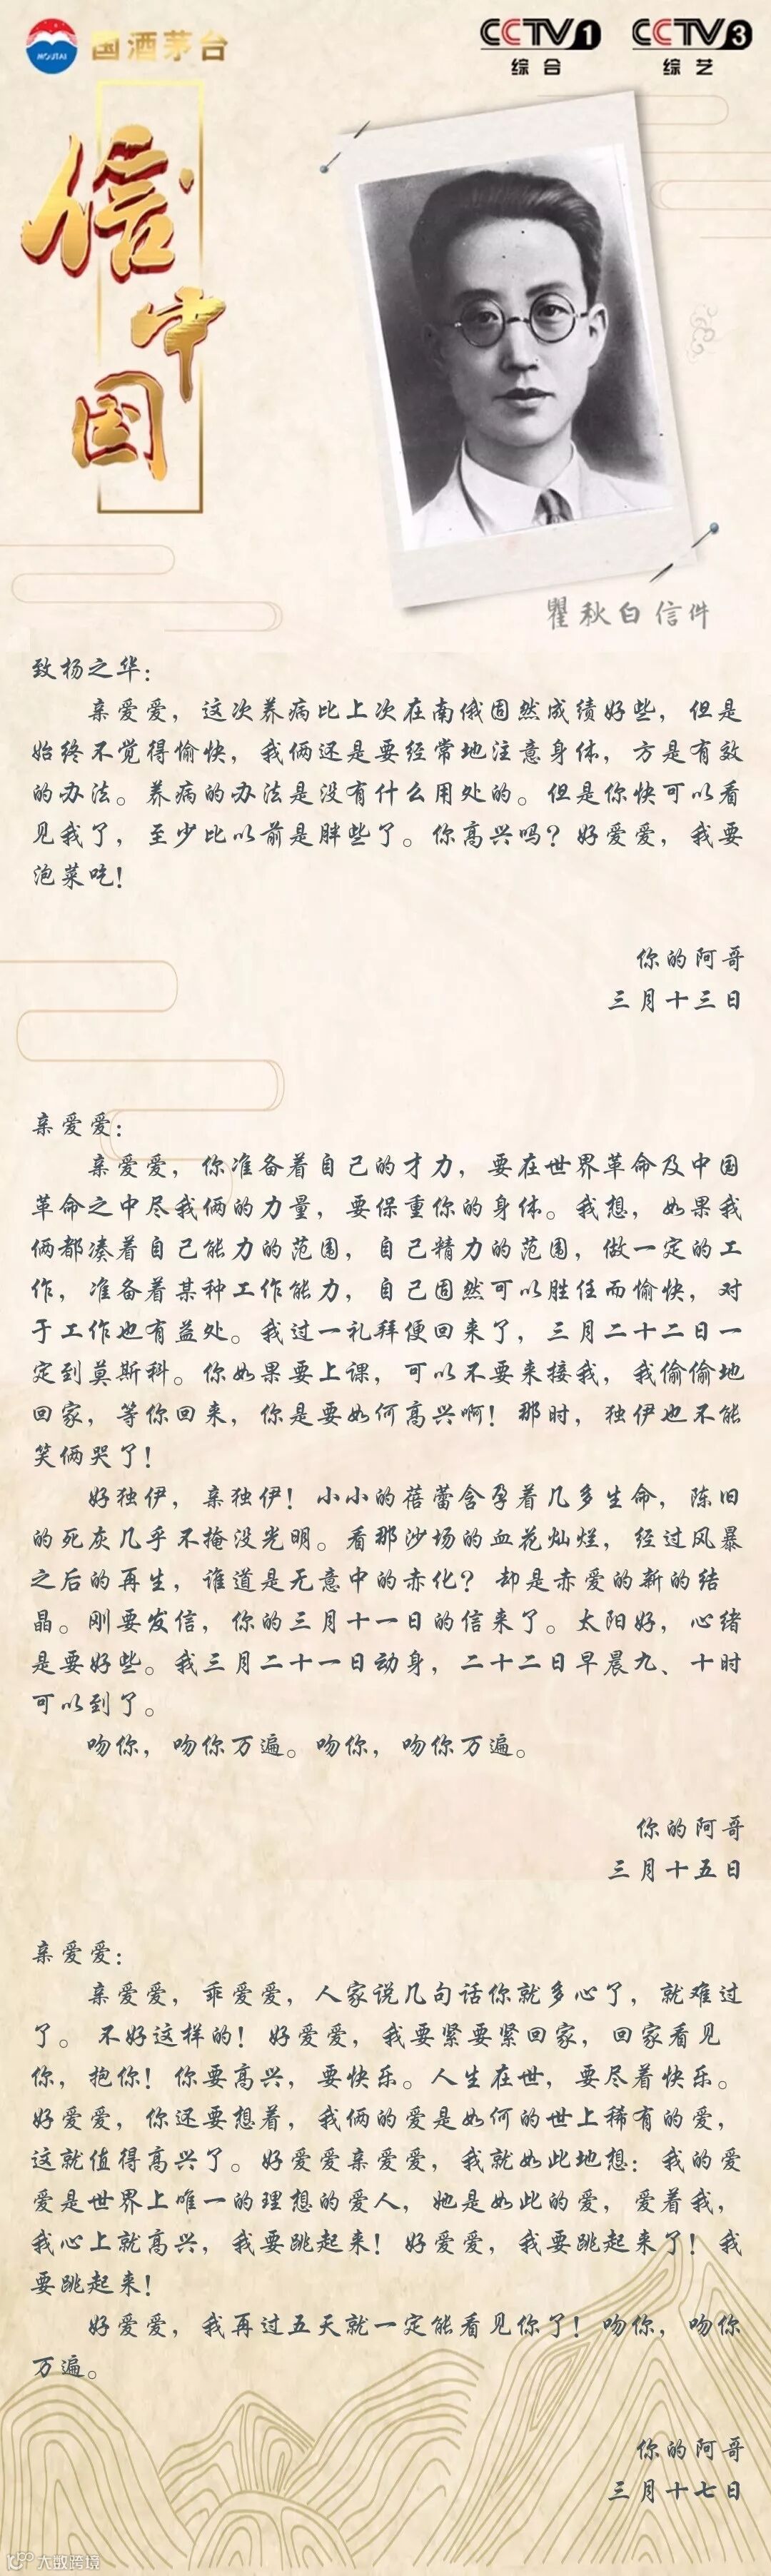 MOUTAI
国酒茅台
CCTV 1
综合
CCTV 3
综艺
信·
中
国
瞿秋白信件
致杨之华：
亲爱爱，这次养病比上次在南俄固然成绩好些，但是
始终不觉得愉快，我俩还是要经常地注意身体，方是有效
的办法。养病的办法是没有什么用处的。但是你快可以看
见我了，至少比以前是胖些了。你高兴吗？好爱爱，我要
泡菜吃！
你的阿哥
三月十三日
亲爱爱：
亲爱爱，你准备着自己的才力，要在世界革命及中国
革命之中尽我俩的力量，要保重你的身体。我想，如果我
俩都凑着自己能力的范围，自己精力的范围，做一定的工
作，准备着某种工作能力，自己固然可以胜任而愉快，对
于工作也有益处。我过一礼拜便回来了，三月二十二日一
定到莫斯科。你如果要上课，可以不要来接我，我偷偷地
回家，等你回来，你是要如何高兴啊！那时，独伊也不能
笑俩哭了！
好独伊，亲独伊！小小的蓓蕾含孕着几多生命，陈旧
的死灰几乎不掩没光明。看那沙场的血花灿烂，经过风暴
之后的再生，谁道是无意中的赤化？却是赤爱的新的结
晶。刚要发信，你的三月十一日的信来了。太阳好，心绪
是要好些。我三月二十一日动身，二十二日早晨九、十时
可以到了。
吻你，吻你万遍。吻你，吻你万遍。
你的阿哥
三月十五日
亲爱爱：
亲爱爱，乖爱爱，人家说几句话你就多心了，就难过
了。不好这样的！好爱爱，我要紧要紧回家，回家看见
你，抱你！你要高兴，要快乐。人生在世，要尽着快乐。
好爱爱，你还要想着，我俩的爱是如何的世上稀有的爱，
这就值得高兴了。好爱爱亲爱爱，我就如此地想：我的爱
爱是世界上唯一的理想的爱人，她是如此的爱，爱着我，
我心上就高兴，我要跳起来！好爱爱，我要跳起来了！我
要跳起来！
好爱爱，我再过五天就一定能看见你了！吻你，吻你
万遍。
你的阿哥
三月十七日
大数跨境